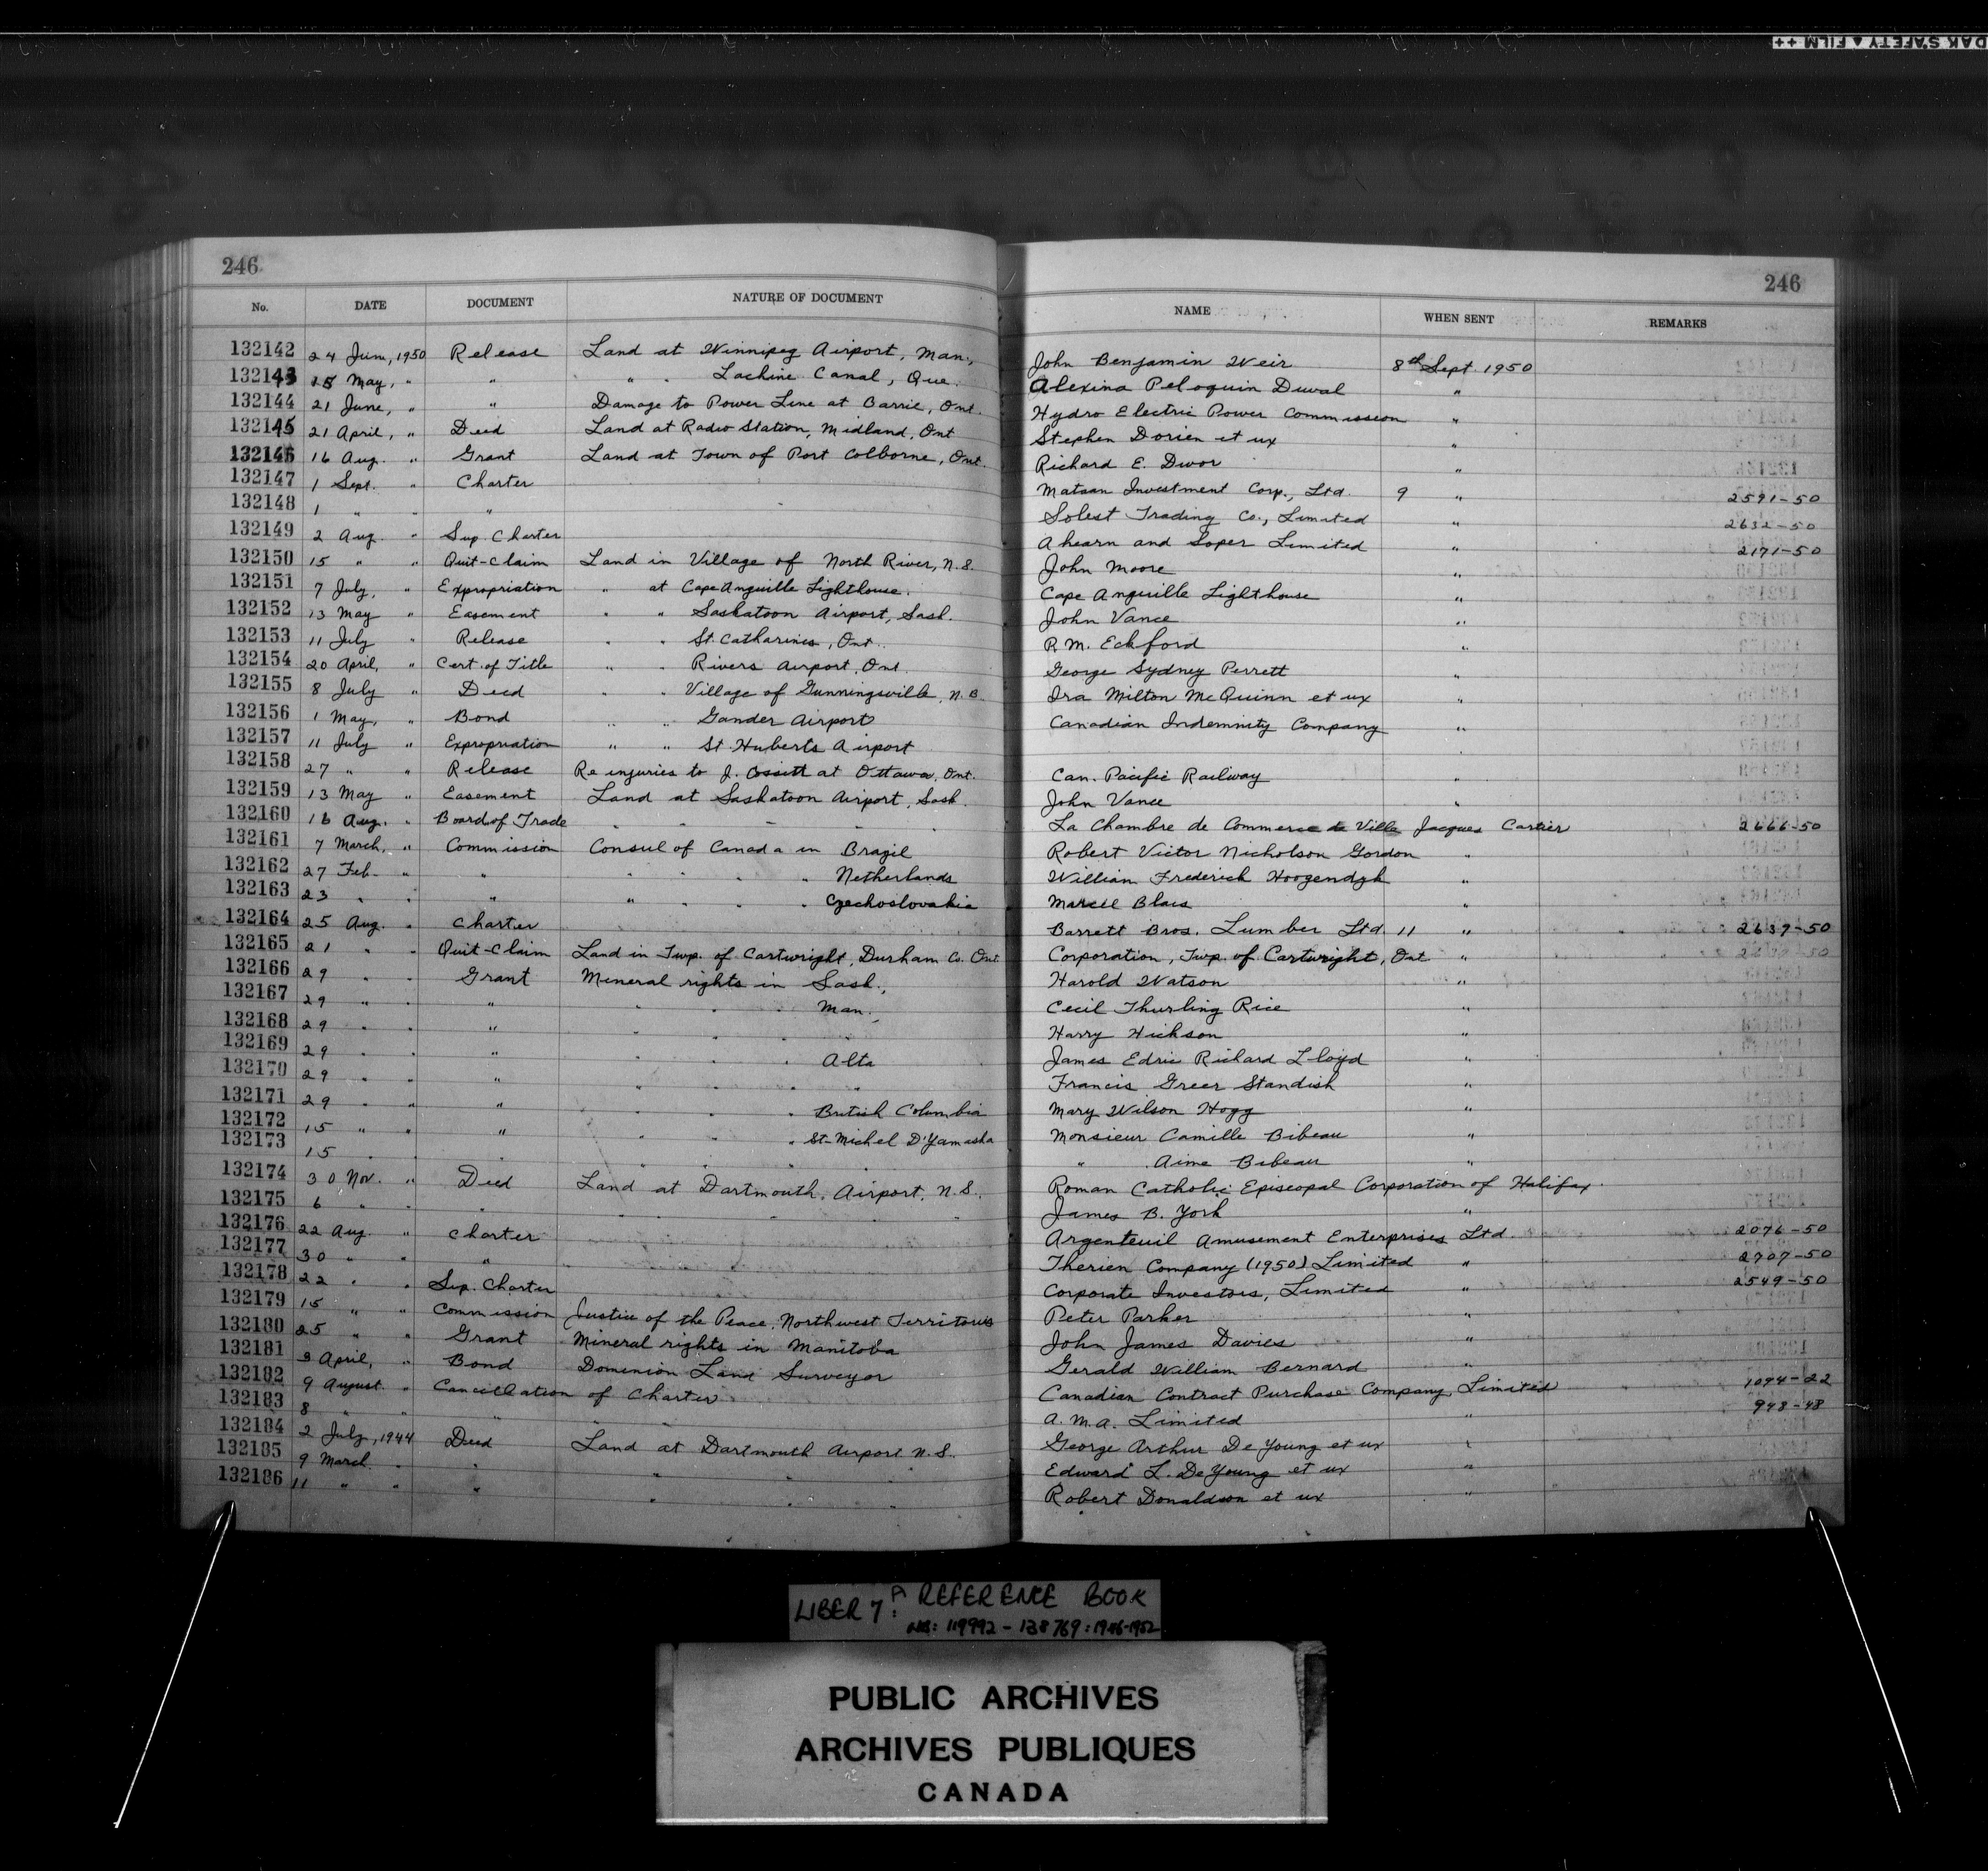 DAK SAFETY ▲ FILM ++
246
246
No. DATE DOCUMENT NATURE OF DOCUMENT NAME WHEN SENT REMARKS
132142 24 June, 1950 Release Land at Winnipeg Airport, Man., John Benjamin Weir 8th Sept 1950
132143 15 May, " " " " Lachine Canal, Que. Alexina Peloquin Duval "
132144 21 June, " " Damage to Power Line at Barrie, Ont. Hydro Electric Power Commission "
132145 21 April, " Deed Land at Radio Station, Midland, Ont Stephen Dorien et ux "
132146 16 Aug. " Grant Land at Town of Port Colborne, Ont. Richard E. Dwor "
132147 1 Sept. " Charter Matson Investment Corp., Ltd. 9 " 2591-50
132148 1 " " " Solest Trading Co., Limited " 2632-50
132149 2 Aug. " Sup. Charter Ahearn and Soper Limited " 2171-50
132150 15 " " Quit-Claim Land in Village of North River, N.S. John Moore "
132151 7 July, " Expropriation " at Cape Anguille Lighthouse. Cape Anguille Lighthouse "
132152 13 May " Easement " " Saskatoon Airport, Sask. John Vance "
132153 11 July " Release " " St. Catharines, Ont. R.M. Eckford "
132154 20 April, " Cert. of Title " " Rivers Airport, Ont. George Sydney Perrett "
132155 8 July " Deed " " Village of Gunningsville, N.B. Ira Milton McQuinn et ux "
132156 1 May, " Bond " " Gander Airport Canadian Indemnity Company "
132157 11 July " Expropriation " " St. Huberts Airport "
132158 27 " " Release Re injuries to J. Cossitt at Ottawa, Ont. Can. Pacific Railway "
132159 13 May " Easement Land at Saskatoon Airport, Sask. John Vance "
132160 16 Aug. " Board of Trade " " " " La Chambre de Commerce de Ville Jacques Cartier 2666-50
132161 7 March, " Commission Consul of Canada in Brazil Robert Victor Nicholson Gordon "
132162 27 Feb. " " " " " " Netherlands William Frederick Hoogendyk "
132163 23 " " " " " " " Czechoslovakia Marcel Blais "
132164 25 Aug. " Charter Barrett Bros. Lumber Ltd. 11 " 2639-50
132165 21 " " Quit-Claim Land in Twp. of Cartwright, Durham Co. Ont. Corporation, Twp. of Cartwright, Ont "
132166 29 " " Grant Mineral rights in Sask., Harold Watson "
132167 29 " " " " " " Man., Cecil Thurling Rice "
132168 29 " " " " " " " Harry Hickson "
132169 29 " " " " " " Alta James Edric Richard Lloyd "
132170 29 " " " " " " " Francis Greer Standish "
132171 29 " " " " " " British Columbia Mary Wilson Hogg "
132172 15 " " " " " " St-Michel D'Yamaska Monsieur Camille Bibeau "
132173 15 " " " " " " " " Aime Bibeau "
132174 30 Nov. " Deed Land at Dartmouth, Airport, N.S. Roman Catholic Episcopal Corporation of Halifax.
132175 6 " " " " " " " " James B. York "
132176 22 Aug. " Charter Argenteuil Amusement Enterprises Ltd. 2076-50
132177 30 " " " Therien Company (1950) Limited " 2707-50
132178 22 " " Sup. Charter Corporate Investors, Limited " 2549-50
132179 15 " " Commission Justice of the Peace, Northwest Territories Peter Parker "
132180 25 " " Grant Mineral rights in Manitoba John James Davies "
132181 April, " Bond Dominion Land Surveyor Gerald William Bernard "
132182 9 August " Cancellation of Charter Canadian Contract Purchase Company, Limited 1094-22
132183 8 " " " " " A.M.A. Limited " 948-48
132184 2 July, 1944 Deed Land at Dartmouth Airport N.S. George Arthur De Young et ux "
132185 9 March " " " " " " Edward L. De Young et ux "
132186 11 " " " " " " " Robert Donaldson et ux "
LIBER 7: A REFERENCE BOOK
NOS: 119992 - 138769: 1946-1952
PUBLIC ARCHIVES
ARCHIVES PUBLIQUES
CANADA